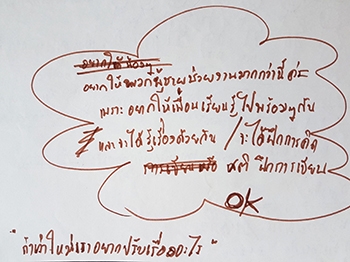 อยากให้น้องๆ
อยากให้พวกผู้ชายช่วยงานมากกว่านี้ค่ะ
เพราะอยากให้เพื่อนเรียนรู้ไปพร้อมๆกัน
และจะได้รู้เรื่องด้วยกัน / จะได้ฝึกการคิด
การเขียน สติ ฝึกการเขียน
OK
"ถ้าทำใหม่เราอยากปรับเรื่องอะไร"